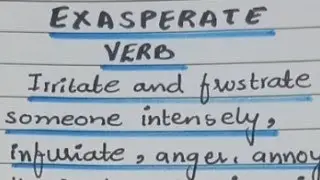 EXASPERATE
VERB
Irritate and frustrate
someone intensely,
infuriate, anger, annoy